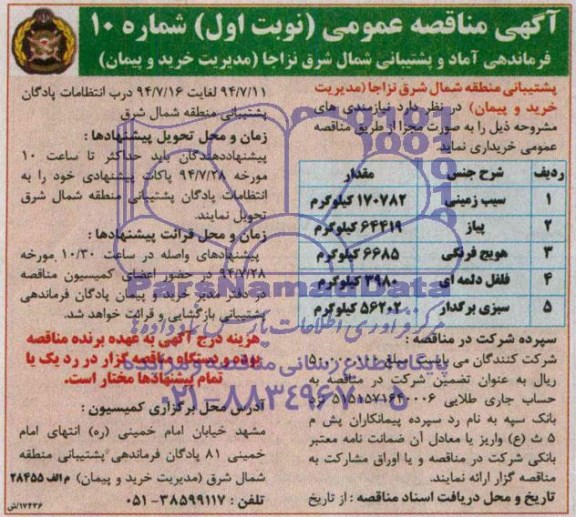 آگهی مناقصه عمومی (نوبت اول) شماره ۱۰
فرماندهی آماد و پشتیبانی شمال شرق نزاجا (مدیریت خرید و پیمان)
پشتیبانی منطقه شمال شرق نزاجا (مدیریت
خرید و پیمان) در نظر دارد نیازمندی های
مشروحه ذیل را به صورت مجزا از طریق مناقصه
عمومی خریداری نماید.
ردیف شرح جنس مقدار
۱ سیب زمینی ۱۷۰۷۸۲ کیلوگرم
۲ پیاز ۶۴۴۱۹ کیلوگرم
۳ هویج فرنگی ۶۶۸۵ کیلوگرم
۴ فلفل دلمه ای ۳۹۸۰ کیلوگرم
۵ سبزی برگدار ۵۶۲۰۲ کیلوگرم
سپرده شرکت در مناقصه :
شرکت کنندگان می بایست مبلغ
ریال به عنوان تضمین شرکت در مناقصه به
حساب جاری طلایی نزد
بانک سپه به نام رد سپرده پیمانکاران پش م
۵ ث (ع) واریز یا معادل آن ضمانت نامه معتبر
بانکی شرکت در مناقصه و یا اوراق مشارکت به
مناقصه گزار ارائه نمایند.
تاریخ و محل دریافت اسناد مناقصه : از تاریخ
۹۴/۷/۱۱ لغایت ۹۴/۷/۱۶ درب انتظامات پادگان
پشتیبانی منطقه شمال شرق
زمان و محل تحویل پیشنهادها :
پیشنهاددهندگان باید حداکثر تا ساعت ۱۰
مورخه ۹۴/۷/۲۸ پاکات پیشنهادی خود را به
انتظامات پادگان پشتیبانی منطقه شمال شرق
تحویل نمایند.
زمان و محل قرائت پیشنهادها :
پیشنهادهای واصله در ساعت ۱۰/۳۰ مورخه
۹۴/۷/۲۸ در حضور اعضای کمیسیون مناقصه
در دفتر مدیر خرید و پیمان پادگان فرماندهی
پشتیبانی بازگشایی و قرائت خواهد شد.
هزینه درج آگهی به عهده برنده مناقصه
بوده و دستگاه مناقصه گزار در رد یک یا
تمام پیشنهادها مختار است.
آدرس محل برگزاری کمیسیون :
مشهد خیابان امام خمینی (ره) انتهای امام
خمینی ۸۱ پادگان فرماندهی پشتیبانی منطقه
شمال شرق (مدیریت خرید و پیمان) م الف ۲۸۴۵۵
تلفن : ۳۸۵۹۹۱۱۷-۰۵۱
۱۷۴۳۶/ش
ParsNamadData
مرکز فرآوری اطلاعات پارس نماد داده ها
پایگاه اطلاع رسانی مناقصه و مزایده
۰۲۱-۸۸۳۴۹۶۷۰-۵